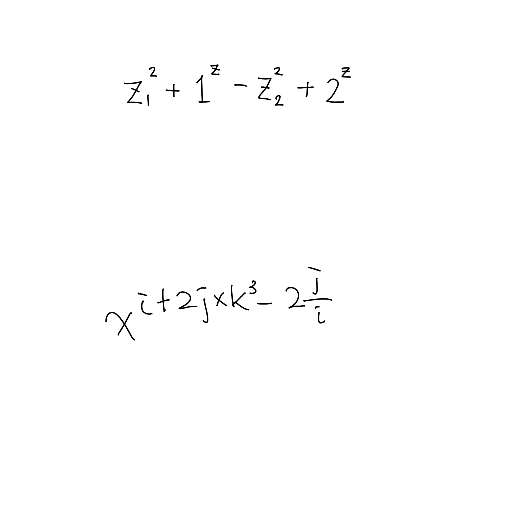 z₁² + 1ᶻ − z₂² + 2ᶻ
x^{i + 2j × k³ − 2\frac{j}{i}}